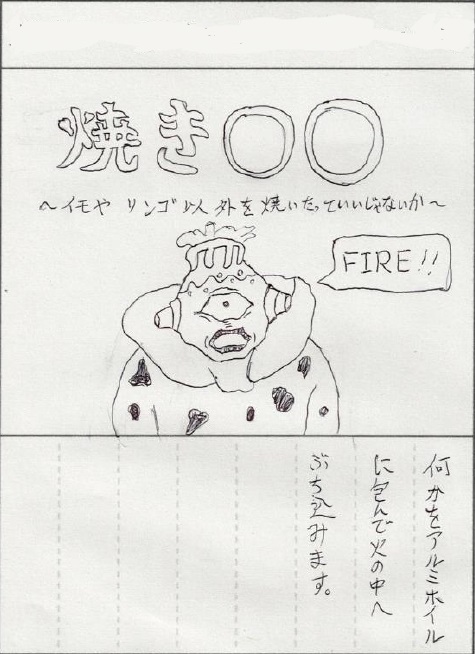 焼き〇〇
～イモや リンゴ以外を焼いたっていいじゃないか～
FIRE!!
何かをアルミホイル
に包んで火の中へ
ぶち込みます。